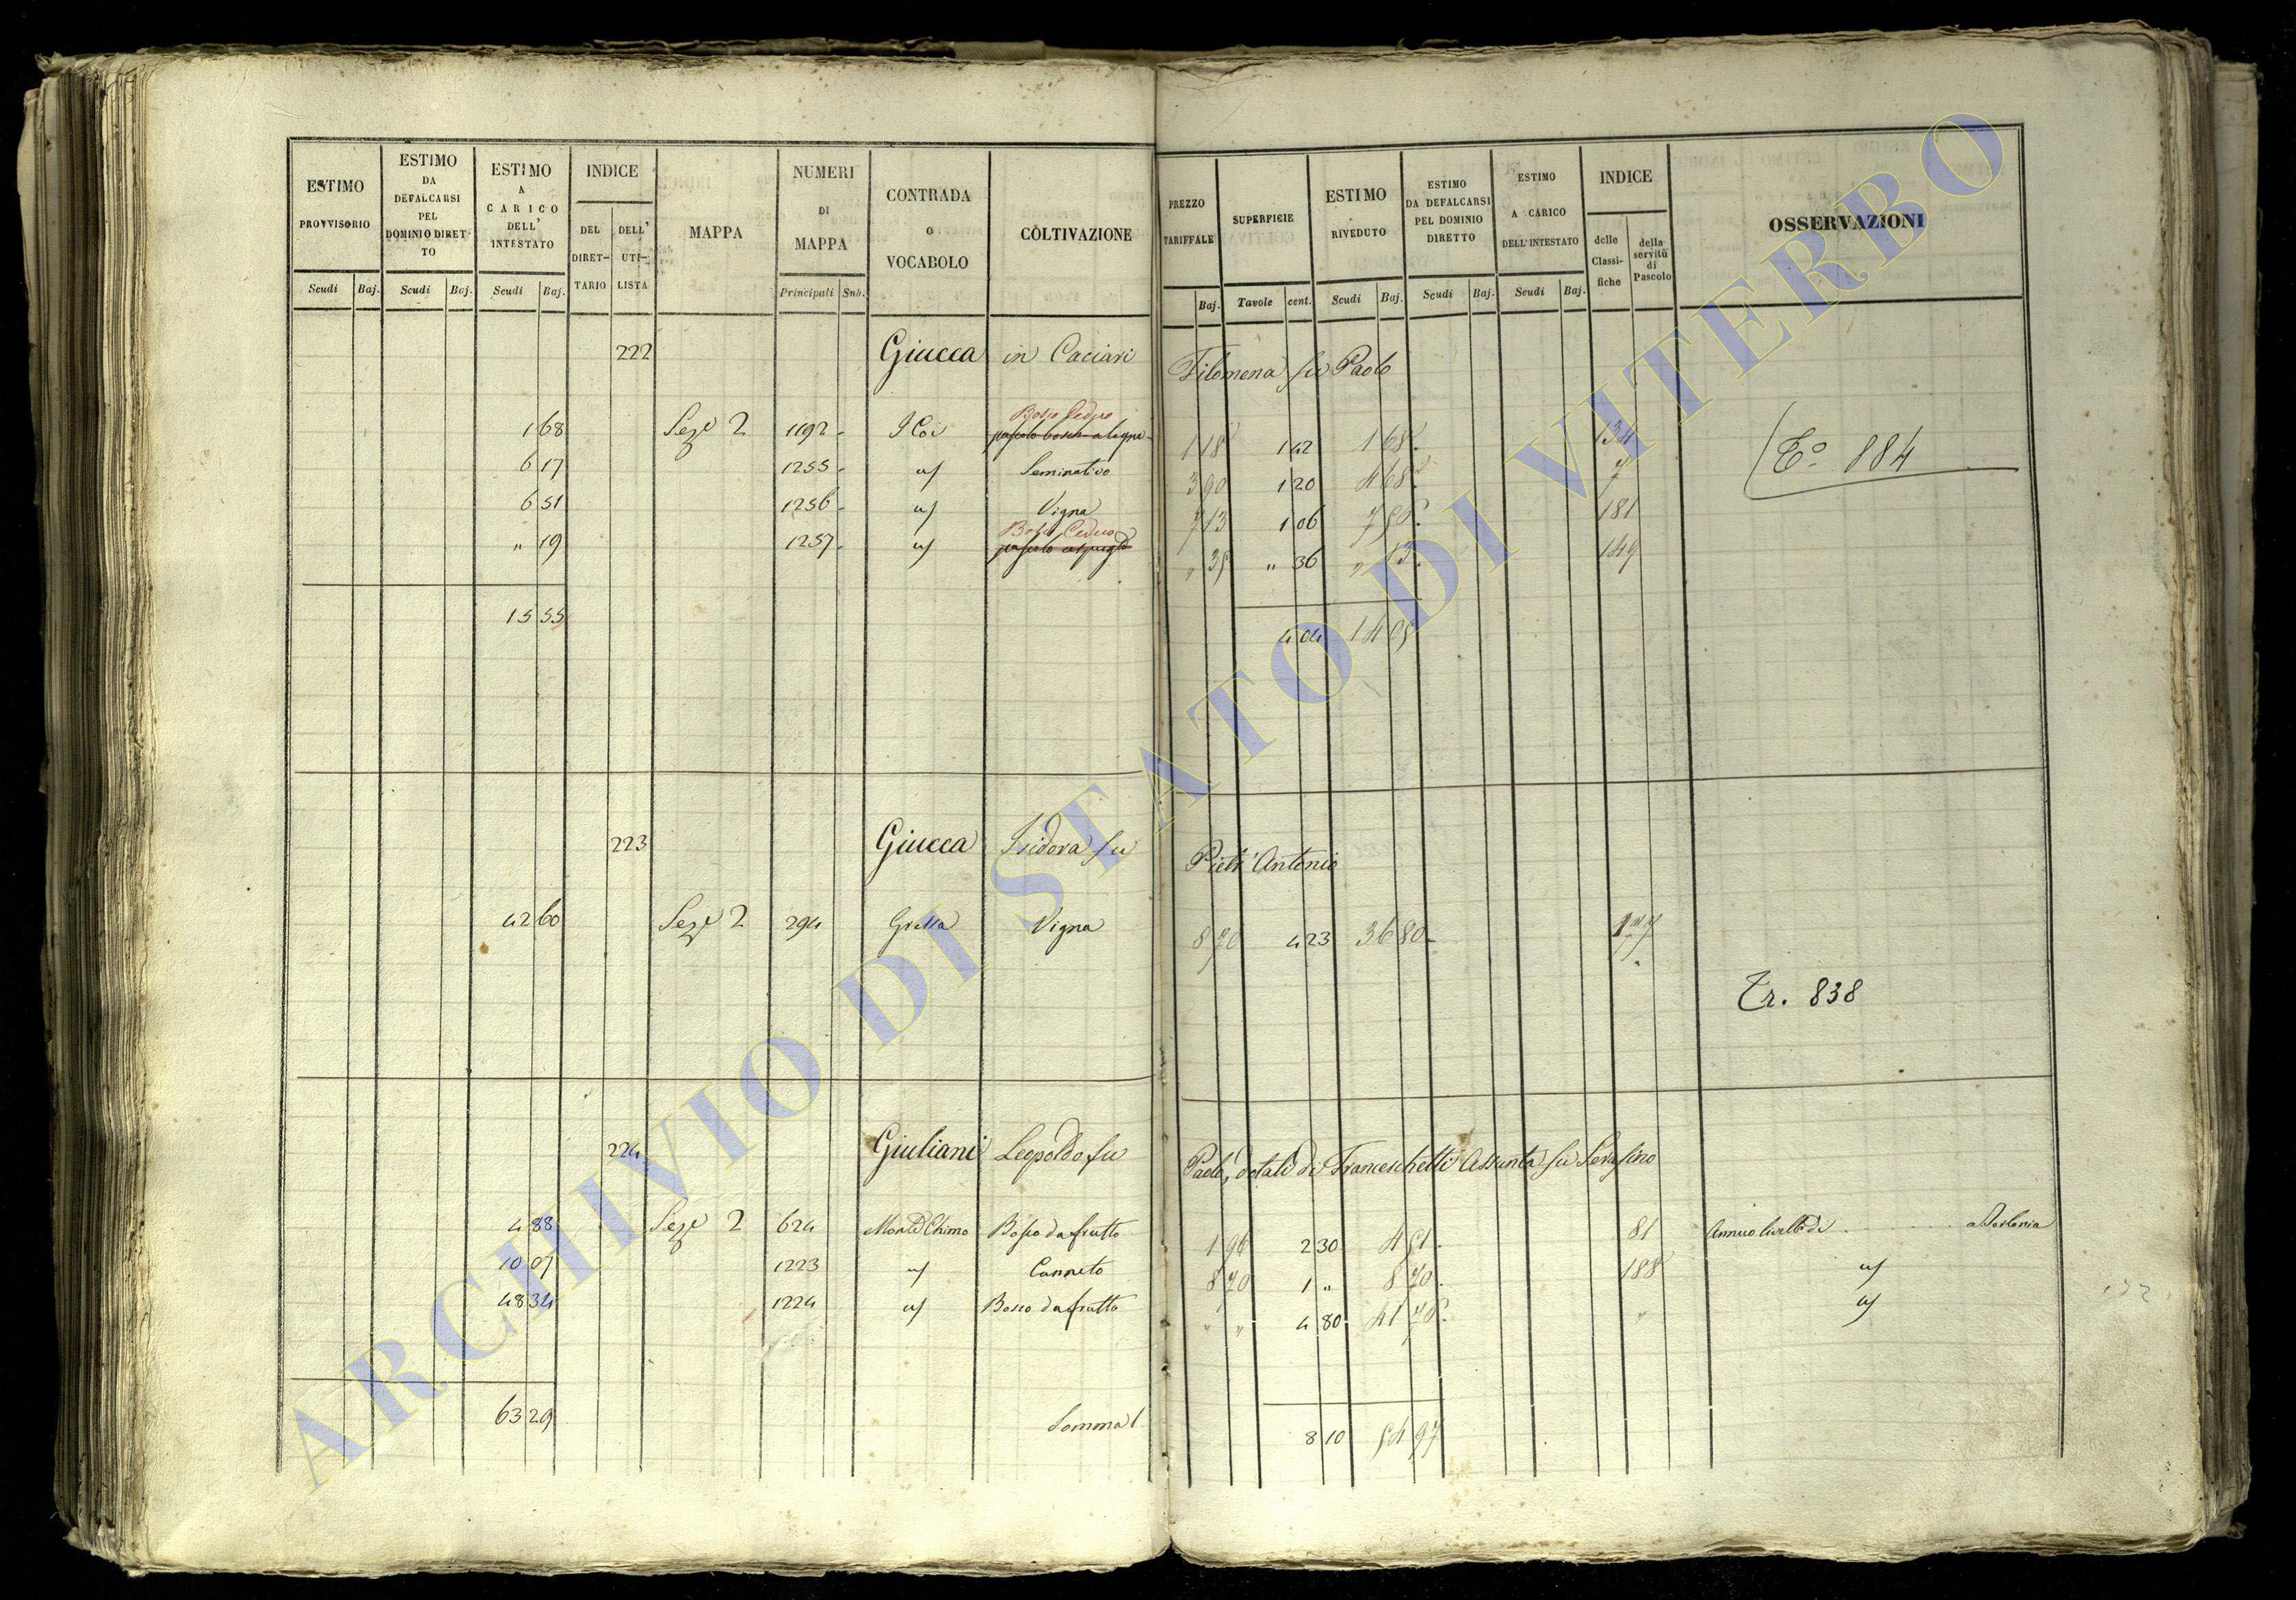 ESTIMO PROVVISORIO
ESTIMO DA DEFALCARSI PEL DOMINIO DIRETTO
ESTIMO A CARICO DELL' INTESTATO
INDICE
DEL DIRETTARIO
DELL' UTILISTA
MAPPA
NUMERI DI MAPPA
CONTRADA o VOCABOLO
COLTIVAZIONE
PREZZO TARIFFALE
SUPERFICIE
ESTIMO RIVEDUTO
ESTIMO DA DEFALCARSI PEL DOMINIO DIRETTO
ESTIMO A CARICO DELL'INTESTATO
INDICE
delle Classifiche
della servitù di Pascolo
OSSERVAZIONI
Scudi Baj. Scudi Baj. Scudi Baj. Principali Sub. Baj. Tavole cent. Scudi Baj. Scudi Baj. Scudi Baj.
222 Giucca in Caciari Filomena fu Paolo
Bosco Ceduo
1 68 Seze 2 1192 I Coi 1 18 1 42 1 68 134
6 17 1255 Seminativo 3 90 1 20 4 68 7
6 51 1256 Vigna 7 13 1 06 181
Bosco Ceduo
" 19 1257 " 35 " 36 " 13 149
15 55 4 04 14 05
Eº 884
223 Giucca Isidora fu Pietr'Antonio
42 60 Seze 2 294 Vigna 8 70 4 23 36 80 177
Tr. 838
224 Giuliani Leopoldo fu Paolo, dotali di Franceschetti Assunta fu Serafino
4 88 Seze 2 624 Monte Chimo Bosco da frutto 1 96 2 30 4 51 81 Annuo livello di a Torlonia
10 07 1223 Canneto 8 70 1 " 8 70 188
48 34 1224 Bosco da frutto " " 4 80 41 76 "
63 29 Somma 8 10 54 97
ARCHIVIO DI STATO DI VITERBO